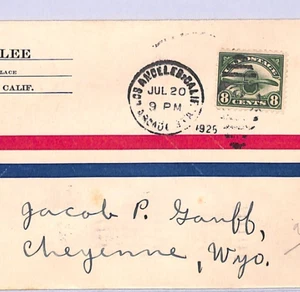 LEE
LACE
CALIF.
LOS ANGELES, CALIF.
JUL 20
9 PM
ARCADE STA.
1925
8 CENTS 8
Jacob P. Gauff,
Cheyenne, Wyo.